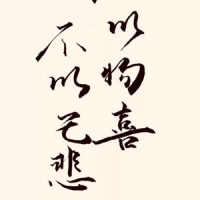 以物喜
不以己悲